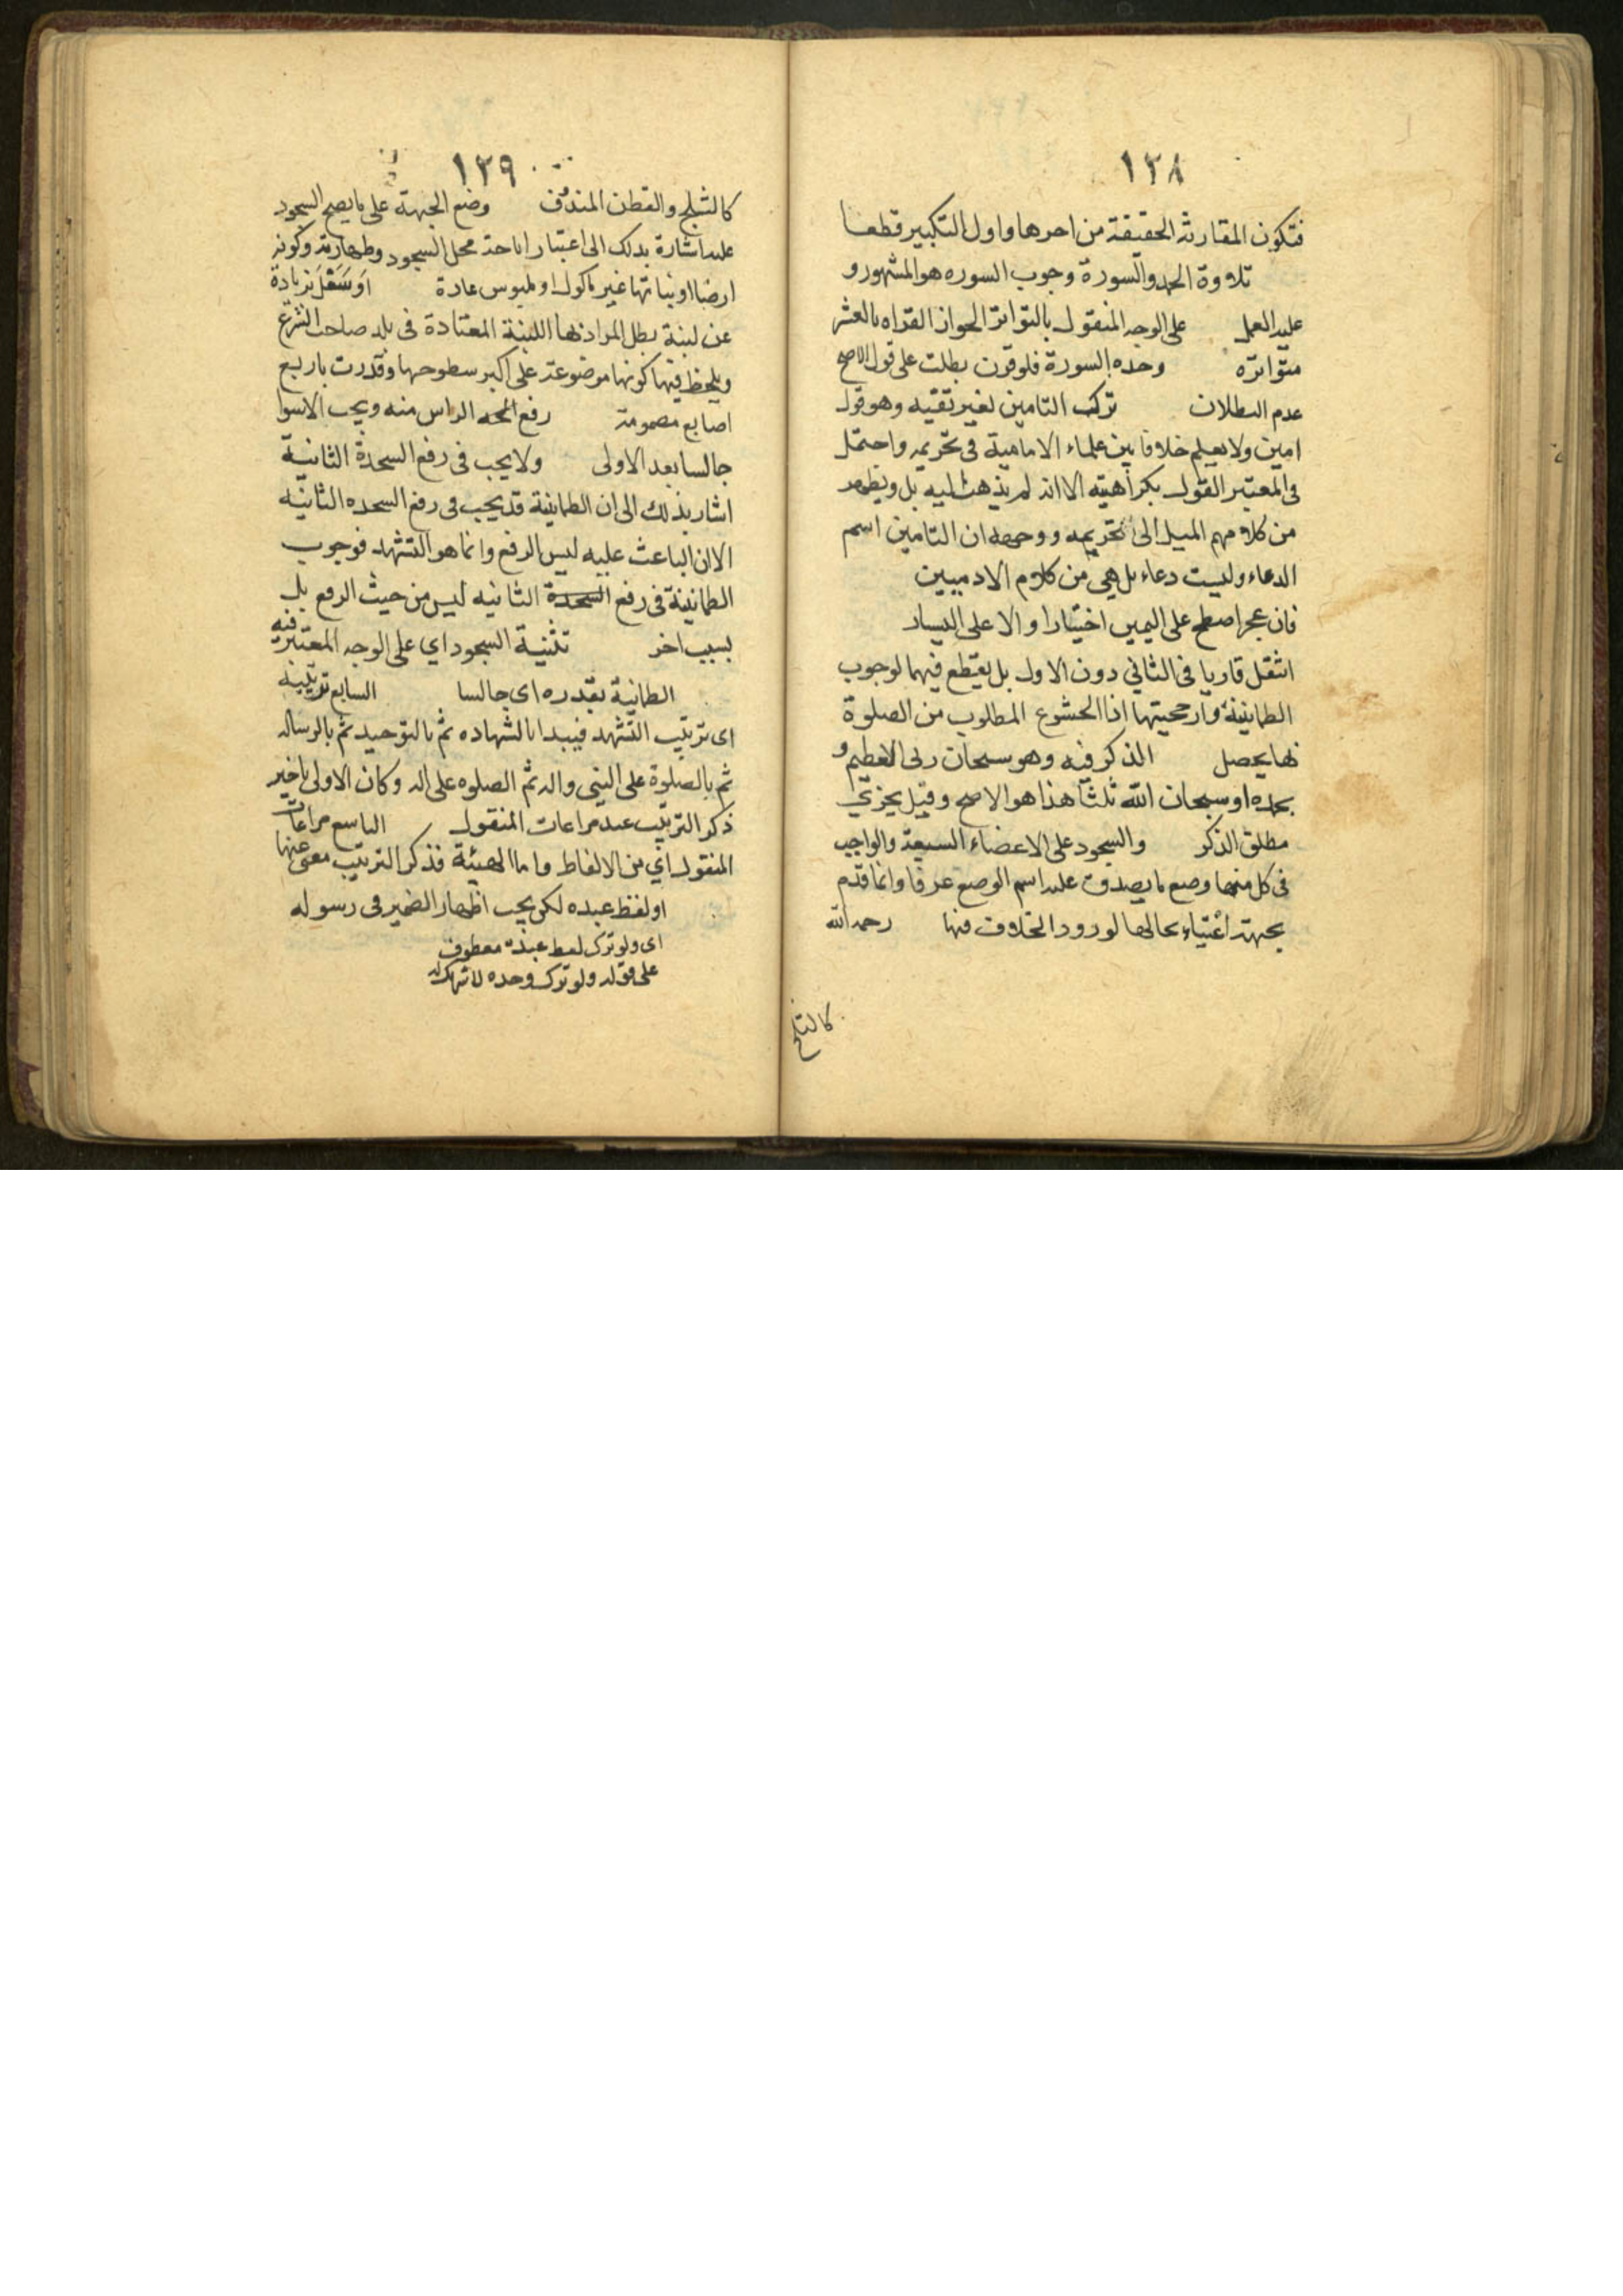 ١٣٨
فتكون المقارنة الحقيقة من اخرها واول التكبير قطعا
تلاوة الحمد والسورة وجوب السوره هو المشهور و
عليه العمل على الوجه المنقول بالتواتر الجواز القراه بالعشر
متواتره وحده السورة فلو قرن بطلت على قول الاصح
عدم البطلان ترك التامين لغير تقيه وهو قول
امين ولا يعلم خلافا بين علماء الامامية في تحريمه واحتمل
في المعتبر القول بكراهيته الا انه لم يذهب اليه بل ويظهر
من كلامهم الميل الى تحريمه ووجهه ان التامين اسم
الدعاء وليست دعاء بل هي من كلام الادميين
فان عجز اضطجع على اليمين اختيارا والا على اليسار
انتقل قاريا في الثاني دون الاول بل يقطع فيهما لوجوب
الطمانينة وارجحيتها اذا الخشوع المطلوب من الصلوة
بها يحصل الذكر فيه وهو سبحان ربي العظيم و
بحمده او سبحان الله ثلثا هذا هو الاصح وقيل يجزي
مطلق الذكر والسجود على الاعضاء السبعة والواجب
في كل منها وضع ما يصدق عليه اسم الوضع عرفا وانما قدم
بجهته اعتناء بحالها لورود الخلاف فيها رحمه الله
كالثلج
١٣٩
كالثلج والقطن المندوف وضع الجبهة على ما يصح السجود
عليه اشارة بذلك الى اعتبار اباحة محل السجود وطهارته وكونه
ارضا او نباتها غير ماكول او ملبوس عادة او سفل بزيادة
عن لبنة بطل المراد بها اللبنة المعتادة في بلد صاحب الشرع
ويلحظ فيها كونها موضوعة على اكبر سطوحها وقدرت باربع
اصابع مضمومة رفع الراس منه ويجب الاستوا
جالسا بعد الاولى ولا يجب في رفع السجدة الثانية
اشار بذلك الى ان الطمانينة قد يجب في رفع السجده الثانيه
الا ان الباعث عليه ليس الرفع وانما هو التشهد فوجوب
الطمانينة في رفع السجدة الثانيه ليس من حيث الرفع بل
بسبب اخر تثنية السجود اي على الوجه المعتبر فيه
الطمانية بقدره اى جالسا السابع ترتيبه
اى ترتيب التشهد فيبدا بالشهاده ثم بالتوحيد ثم بالرساله
ثم بالصلوة على النبى واله ثم الصلوه على اله وكان الاولى تاخير
ذكر الترتيب عند مراعات المنقول التاسع مراعات
المنقول اي من الالفاظ واما الهيئة فذكر الترتيب معنى عنها
او لفظ عبده لكن يجب اظهار الضمير في رسوله
اى ولو ترك لفظ عبده معطوف
على قوله ولو ترك وحده لا شريك له